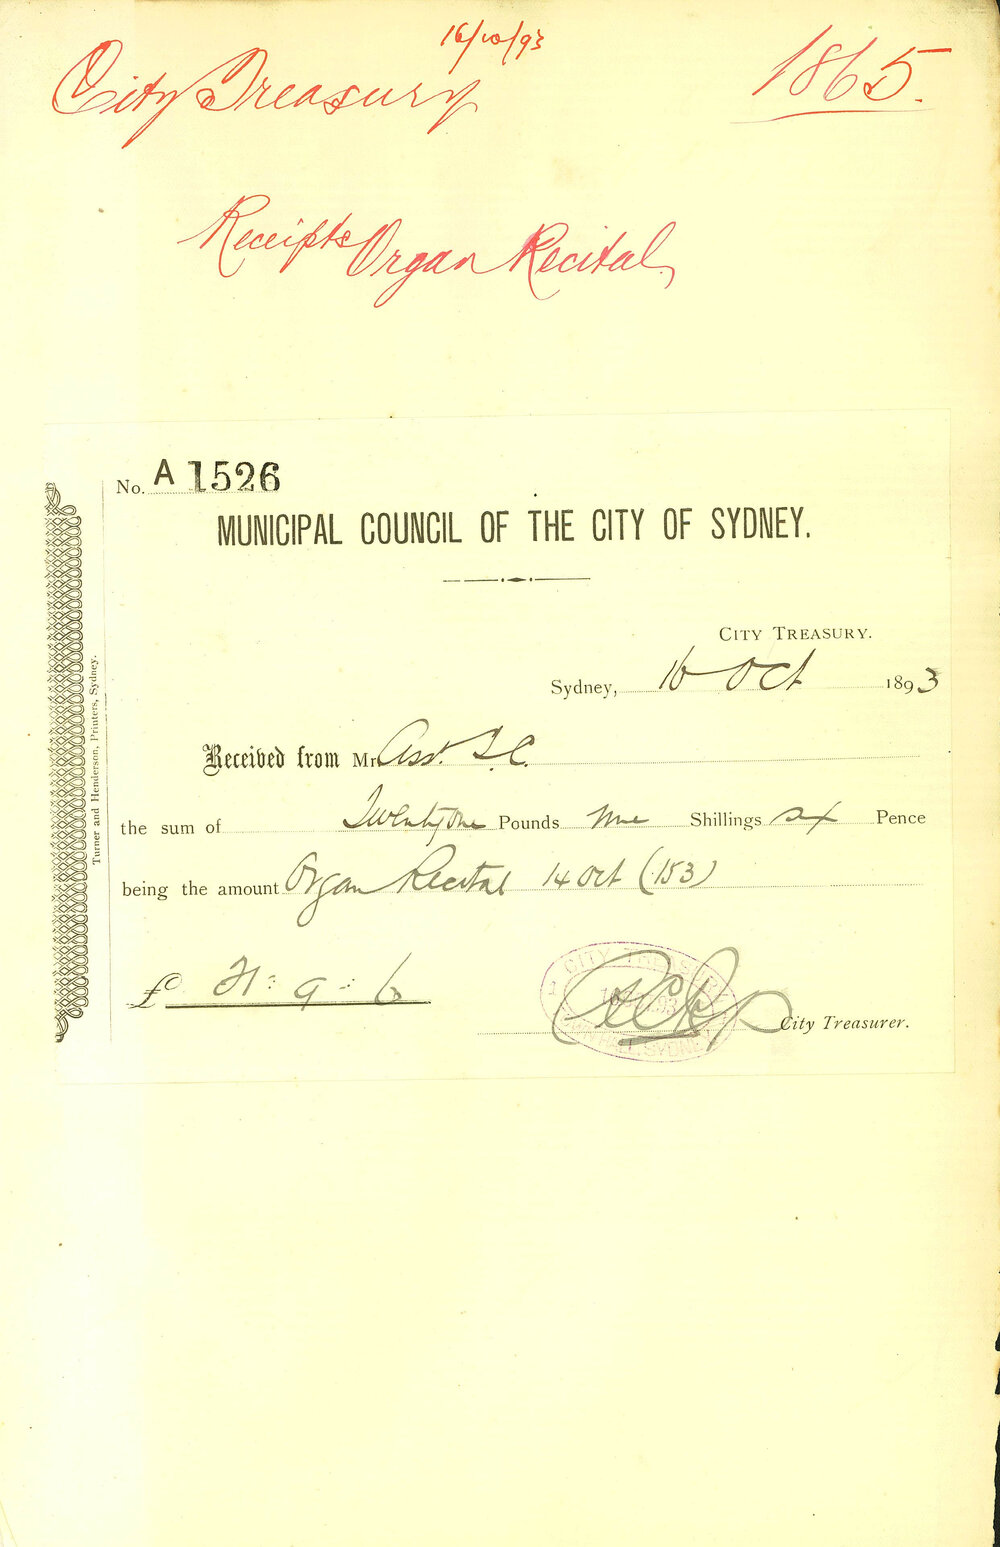 16/10/93
City Treasury 1865.
Receipts Organ Recital
No. A 1526
MUNICIPAL COUNCIL OF THE CITY OF SYDNEY.
CITY TREASURY.
Sydney, 16 Oct 1893
Received from Mr Asst. T.C.
the sum of Twentyone Pounds Nine Shillings six Pence
being the amount Organ Recital 14 Oct (153)
£ 21 : 9 : 6
CITY TREASURY
TOWN HALL, SYDNEY
City Treasurer.
Turner and Henderson, Printers, Sydney.